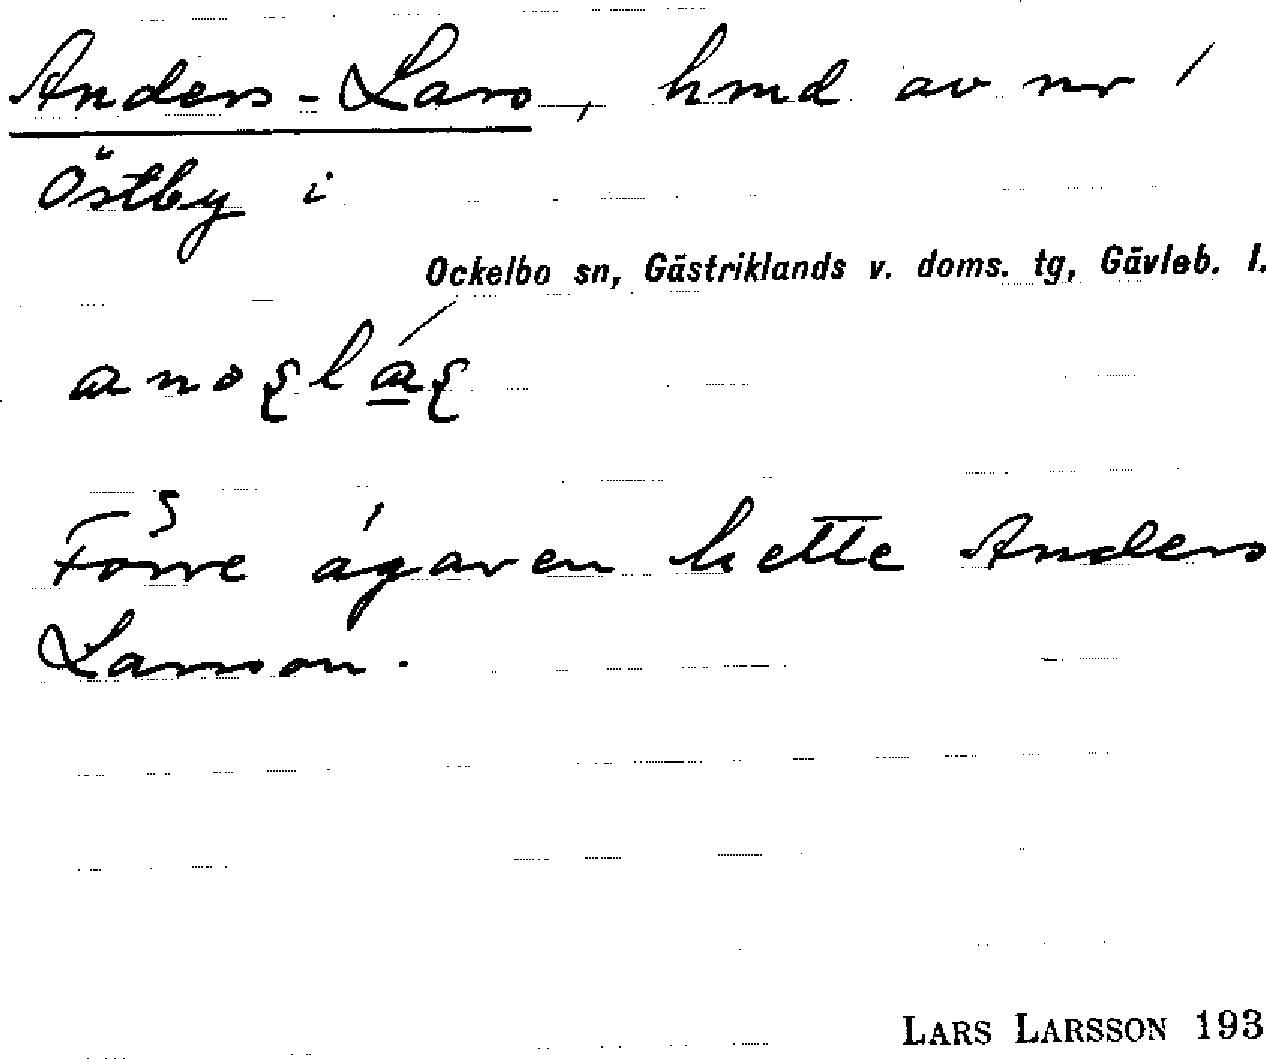 Anders-Lars, hmd av nr 1
Östby i
Ockelbo sn, Gästriklands v. doms. tg, Gävleb. l.
Förre ägaren hette Anders
Larsson.
LARS LARSSON 193